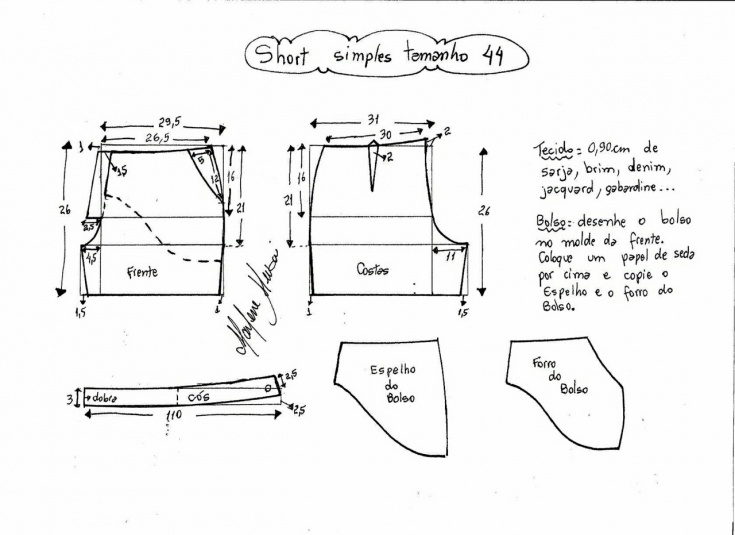 Short simples tamanho 44
29,5
26,5
1
3,5
5
12
16
21
26
2,5
4,5
Frente
1,5
1
31
30
2
2
16
21
26
11
Costas
1
1,5
Tecido = 0,90cm de
sarja, brim, denim,
jacquard, gabardine...
Bolso = desenhe o bolso
no molde da frente.
Coloque um papel de seda
por cima e copie o
Espelho e o forro do
Bolso.
3
dobra
cós
2,5
2,5
110
Espelho
do
Bolso
Forro
do
Bolso